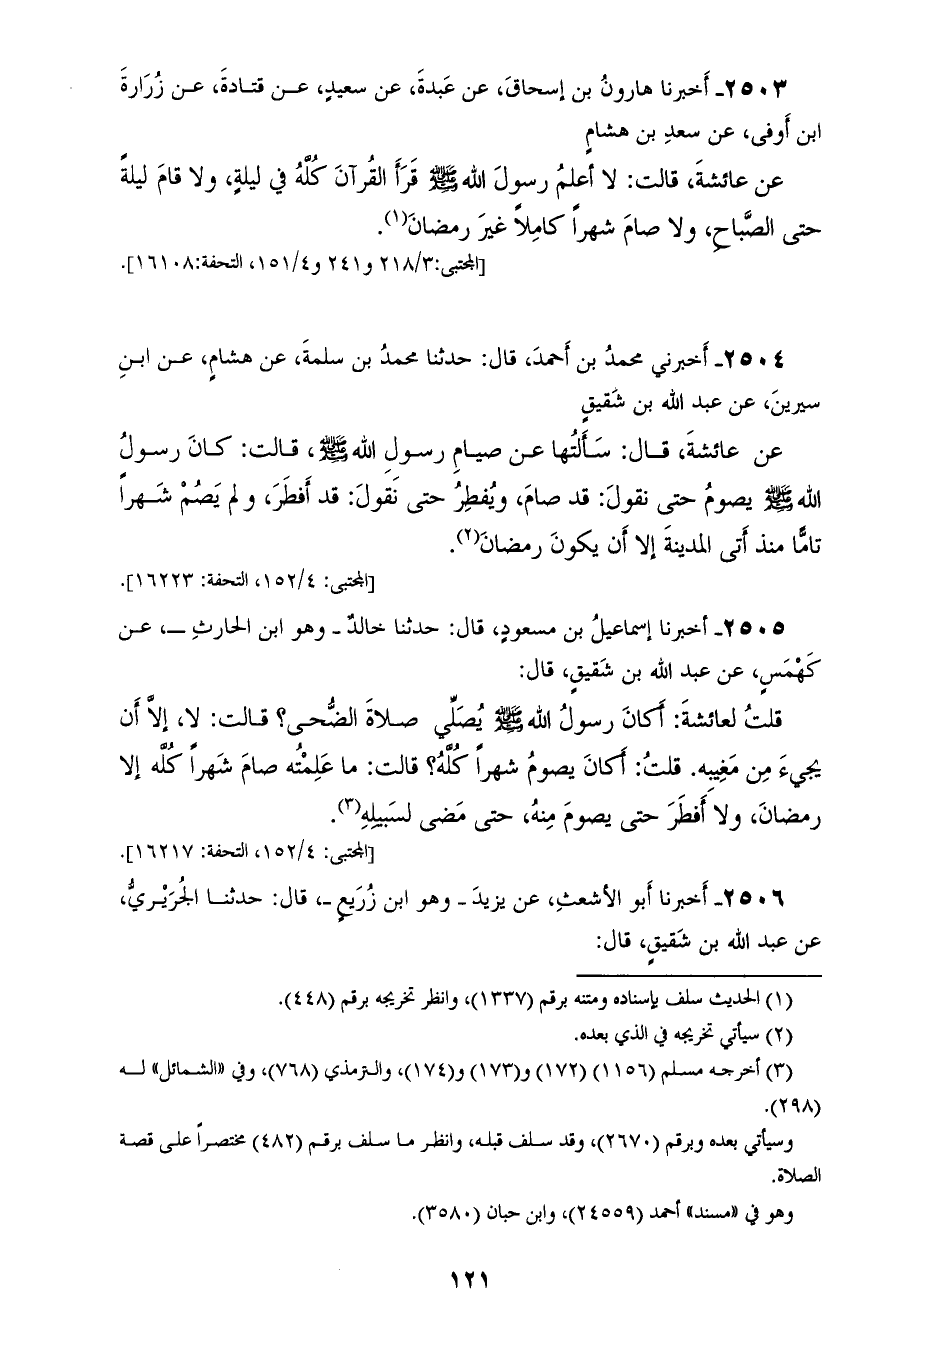 ٢٥٠٣ـ أَخبرنا هارونُ بن إسحاقَ، عن عَبدةَ، عن سعيدٍ، عـن قتـادةَ، عـن زُرَارةَ
ابن أَوفى، عن سعدِ بن هشامٍ
عن عائشةَ، قالت: لا أعلمُ رسولَ اللهﷺ قَرَأَ القُرآنَ كُلَّهُ في ليلةٍ، ولا قامَ ليلةً
حتى الصَّباحِ، ولا صامَ شهراً كامِلاً غيرَ رمضانَ(١).
[المجتبى:٢١٨/٣ و٢٤١ و١٥١/٤، التحفة:١٦١٠٨].
٢٥٠٤ـ أَخبرني محمدُ بن أَحمدَ، قال: حدثنا محمدُ بن سلمةَ، عن هشامٍ، عـن ابـنِ
سيرينَ، عن عبد الله بن شَقيقٍ
عن عائشةَ، قـال: سَأَلتُها عـن صيـامِ رسـولِ اللهﷺ، قـالت: كـانَ رسـولُ
اللهﷺ يصومُ حتى نقولَ: قد صامَ، ويُفطِرُ حتى نَقولَ: قد أَفطَرَ، و لم يَصُمْ شَـهراً
تامًّا منذ أَتى المدينةَ إلا أن يكونَ رمضانَ(٢).
[المجتبى: ١٥٢/٤، التحفة: ١٦٢٢٣].
٢٥٠٥ـ أخبرنا إسماعيلُ بن مسعودٍ، قال: حدثنا خالدٌ ـ وهو ابن الحارثِ ـ، عـن
كَهْمَسٍ، عن عبد الله بن شَقيقٍ، قال:
قلتُ لعائشةَ: أَكانَ رسولُ اللهﷺ يُصَلِّي صـلاةَ الضُّحـى؟ قـالت: لا، إلاَّ أَن
يجيءَ مِن مَغِيبِه. قلتُ: أَكانَ يصومُ شهراً كُلَّهُ؟ قالت: ما عَلِمْتُه صامَ شَهراً كُلَّه إلا
رمضانَ، ولا أَفطَرَ حتى يصومَ مِنهُ، حتى مَضى لسَبيلِهِ(٣).
[المجتبى: ١٥٢/٤، التحفة: ١٦٢١٧].
٢٥٠٦ـ أَخبرنا أَبو الأشعثِ، عن يزيدَ ـ وهو ابن زُرَيعٍ ـ، قال: حدثنـا الجُرَيْـريُّ،
عن عبد الله بن شَقيقٍ، قال:
(١) الحديث سلف بإسناده ومتنه برقم (١٣٣٧)، وانظر تخريجه برقم (٤٤٨).
(٢) سيأتي تخريجه في الذي بعده.
(٣) أخرجـه مسـلم (١١٥٦) (١٧٢) و(١٧٣) و(١٧٤)، والـترمذي (٧٦٨)، وفي «الشـمائل» لـه
(٢٩٨).
وسيأتي بعده وبرقم (٢٦٧٠)، وقد سـلف قبلـه، وانظـر مـا سـلف برقـم (٤٨٢) مختصـراً علـى قصة
الصلاة.
وهو في «مسند» أحمد (٢٤٥٥٩)، وابن حبان (٣٥٨٠).
١٢١